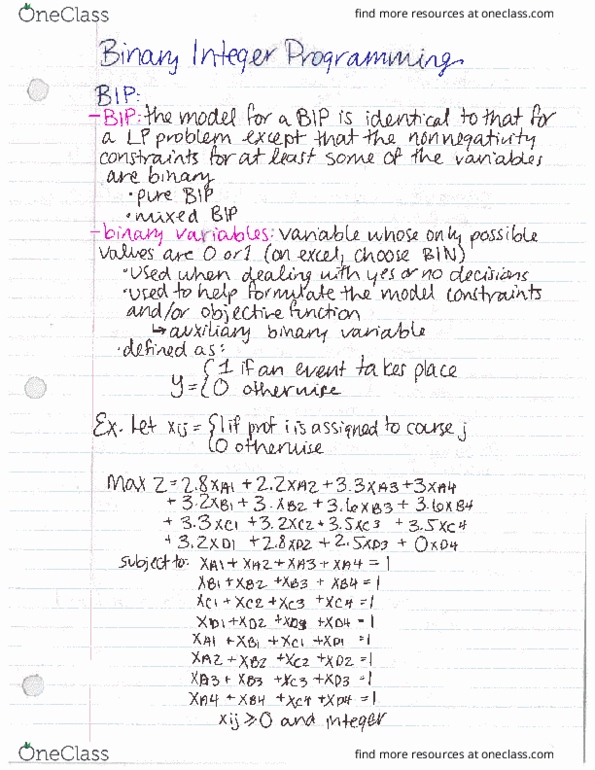 OneClass
find more resources at oneclass.com
Binary Integer Programming
BIP:
-BIP: the model for a BIP is identical to that for
a LP problem except that the nonnegativity
constraints for at least some of the variables
are binary
•pure BIP
•mixed BIP
-binary variables: variable whose only possible
values are 0 or 1 (on excel, choose BIN)
•used when dealing with yes or no decisions
•used to help formulate the model constraints
and/or objective function
↳ auxiliary binary variable
•defined as:
y = { 1 if an event takes place
{ 0 otherwise
Ex. Let xij = { 1 if prof i is assigned to course j
{ 0 otherwise
Max Z = 2.8xA1 + 2.2xA2 + 3.3xA3 + 3xA4
+ 3.2xB1 + 3.xB2 + 3.6xB3 + 3.6xB4
+ 3.3xC1 + 3.2xC2 + 3.5xC3 + 3.5xC4
+ 3.2xD1 + 2.8xD2 + 2.5xD3 + 0xD4
subject to: xA1 + xA2 + xA3 + xA4 = 1
xB1 + xB2 + xB3 + xB4 = 1
xC1 + xC2 + xC3 + xC4 = 1
xD1 + xD2 + xD3 + xD4 = 1
xA1 + xB1 + xC1 + xD1 = 1
xA2 + xB2 + xC2 + xD2 = 1
xA3 + xB3 + xC3 + xD3 = 1
xA4 + xB4 + xC4 + xD4 = 1
xij ≥ 0 and integer
OneClass
find more resources at oneclass.com